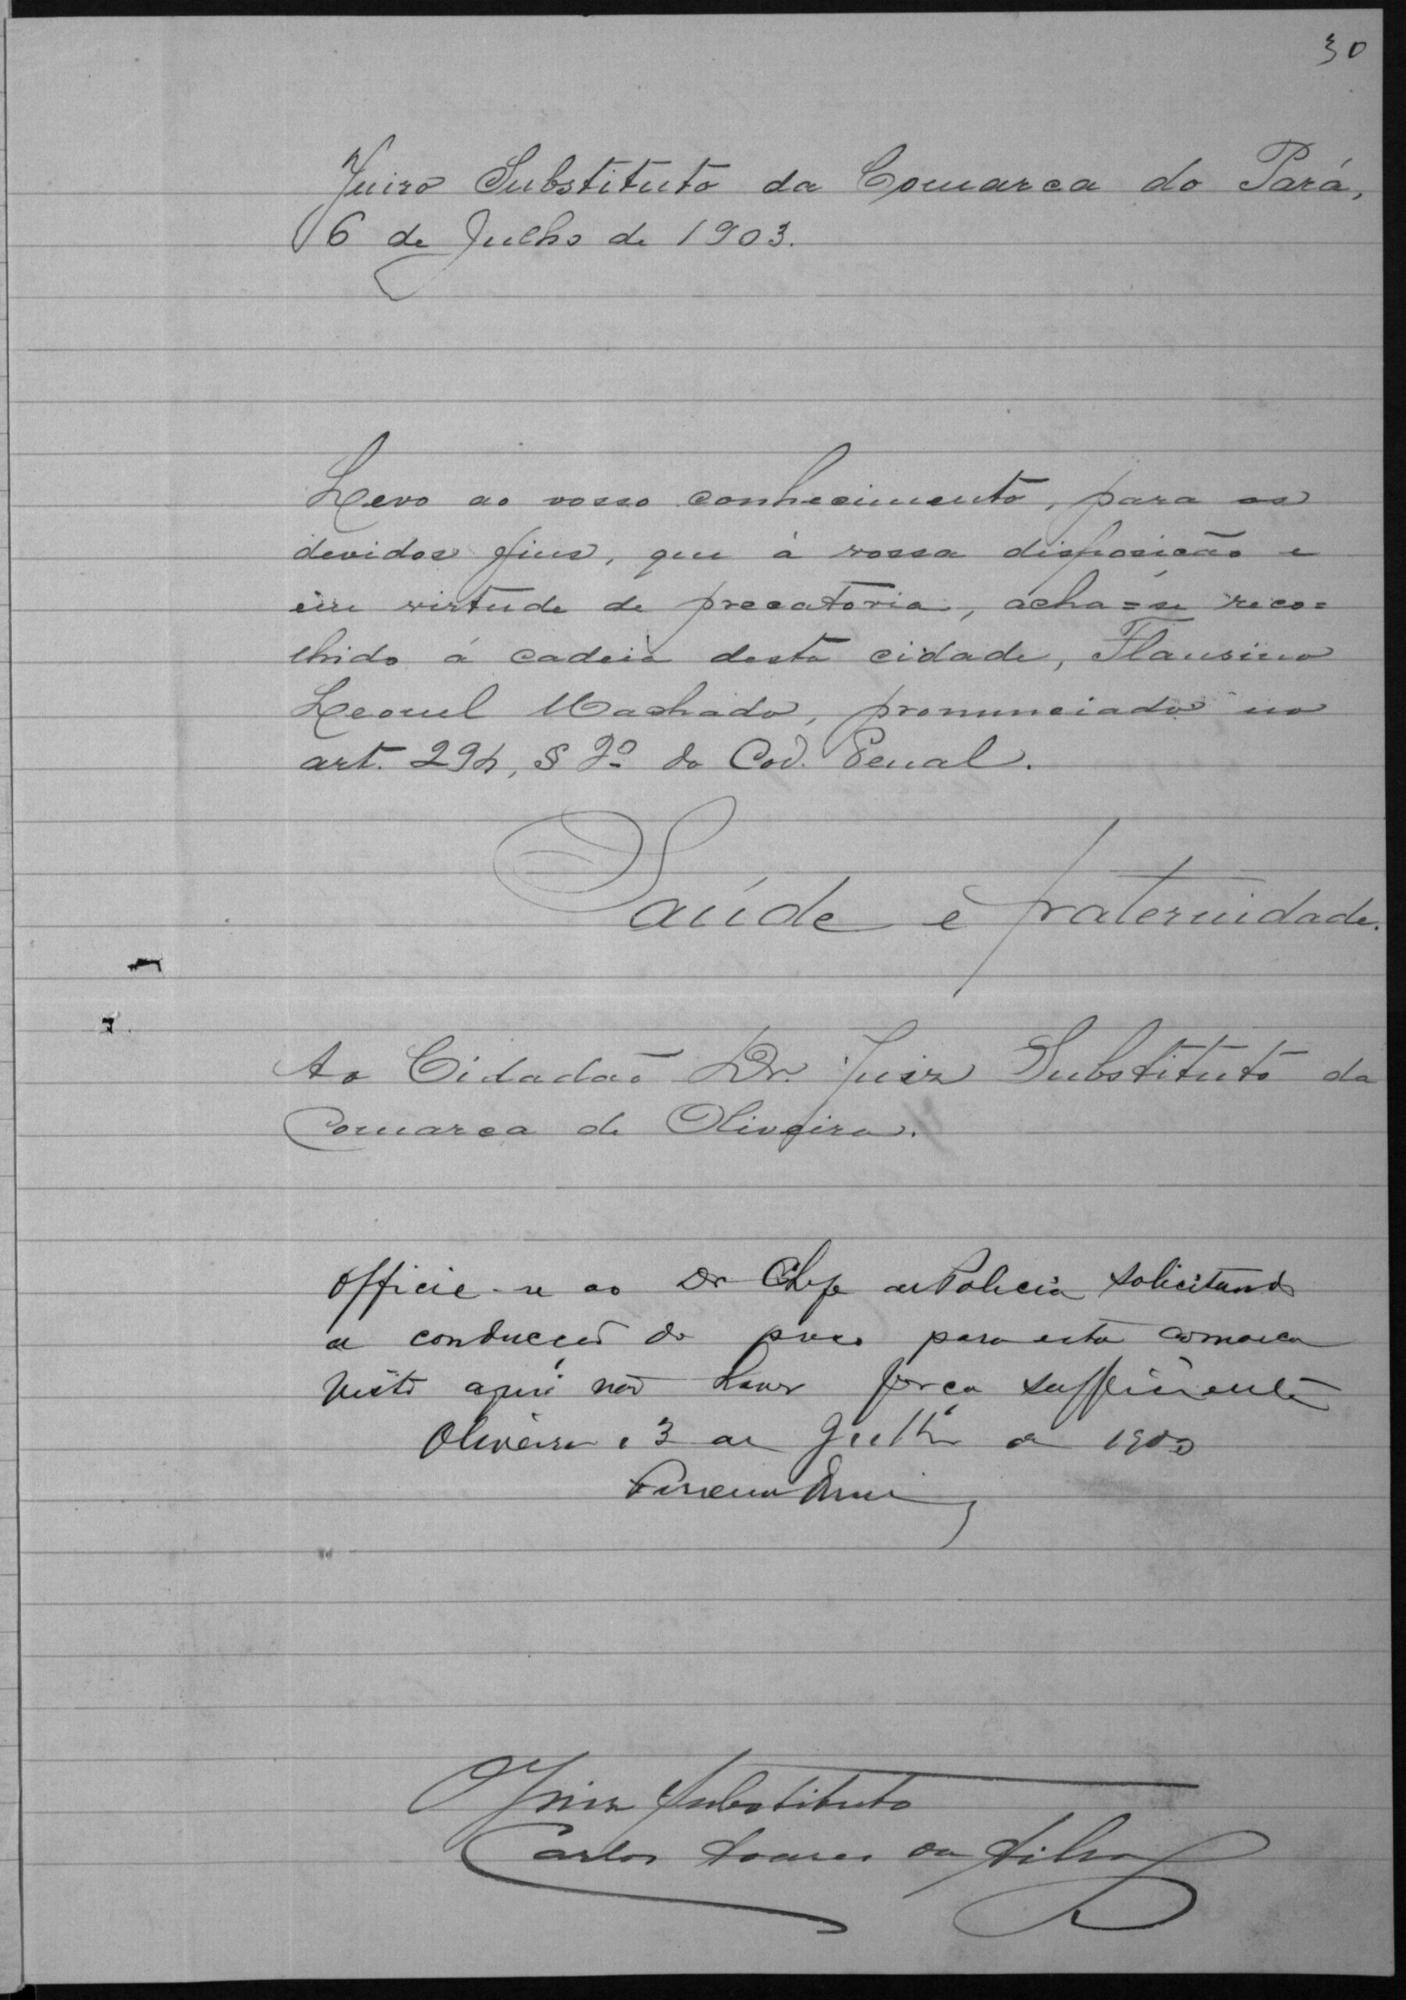 30
Juizo Substituto da Comarca do Pará,
6 de Julho de 1903.
Levo ao vosso conhecimento, para os
devidos fins, que á vossa disposição e
em virtude de precatoria, acha=se reco=
lhido á cadeia desta cidade, Flausino
Leonel Machado, pronunciado no
art. 294, § 2º do Cod. Penal.
Saúde e fraternidade.
Ao Cidadão Dr. Juiz Substituto da
Comarca de Oliveira.
Officie-se ao Dr Chefe de Policia solicitando
a conducção do preso para esta comarca
visto aqui não haver força sufficiente
Oliveira 13 de Julho de 1903
O Juiz Substituto
Carlos Soares da Silva